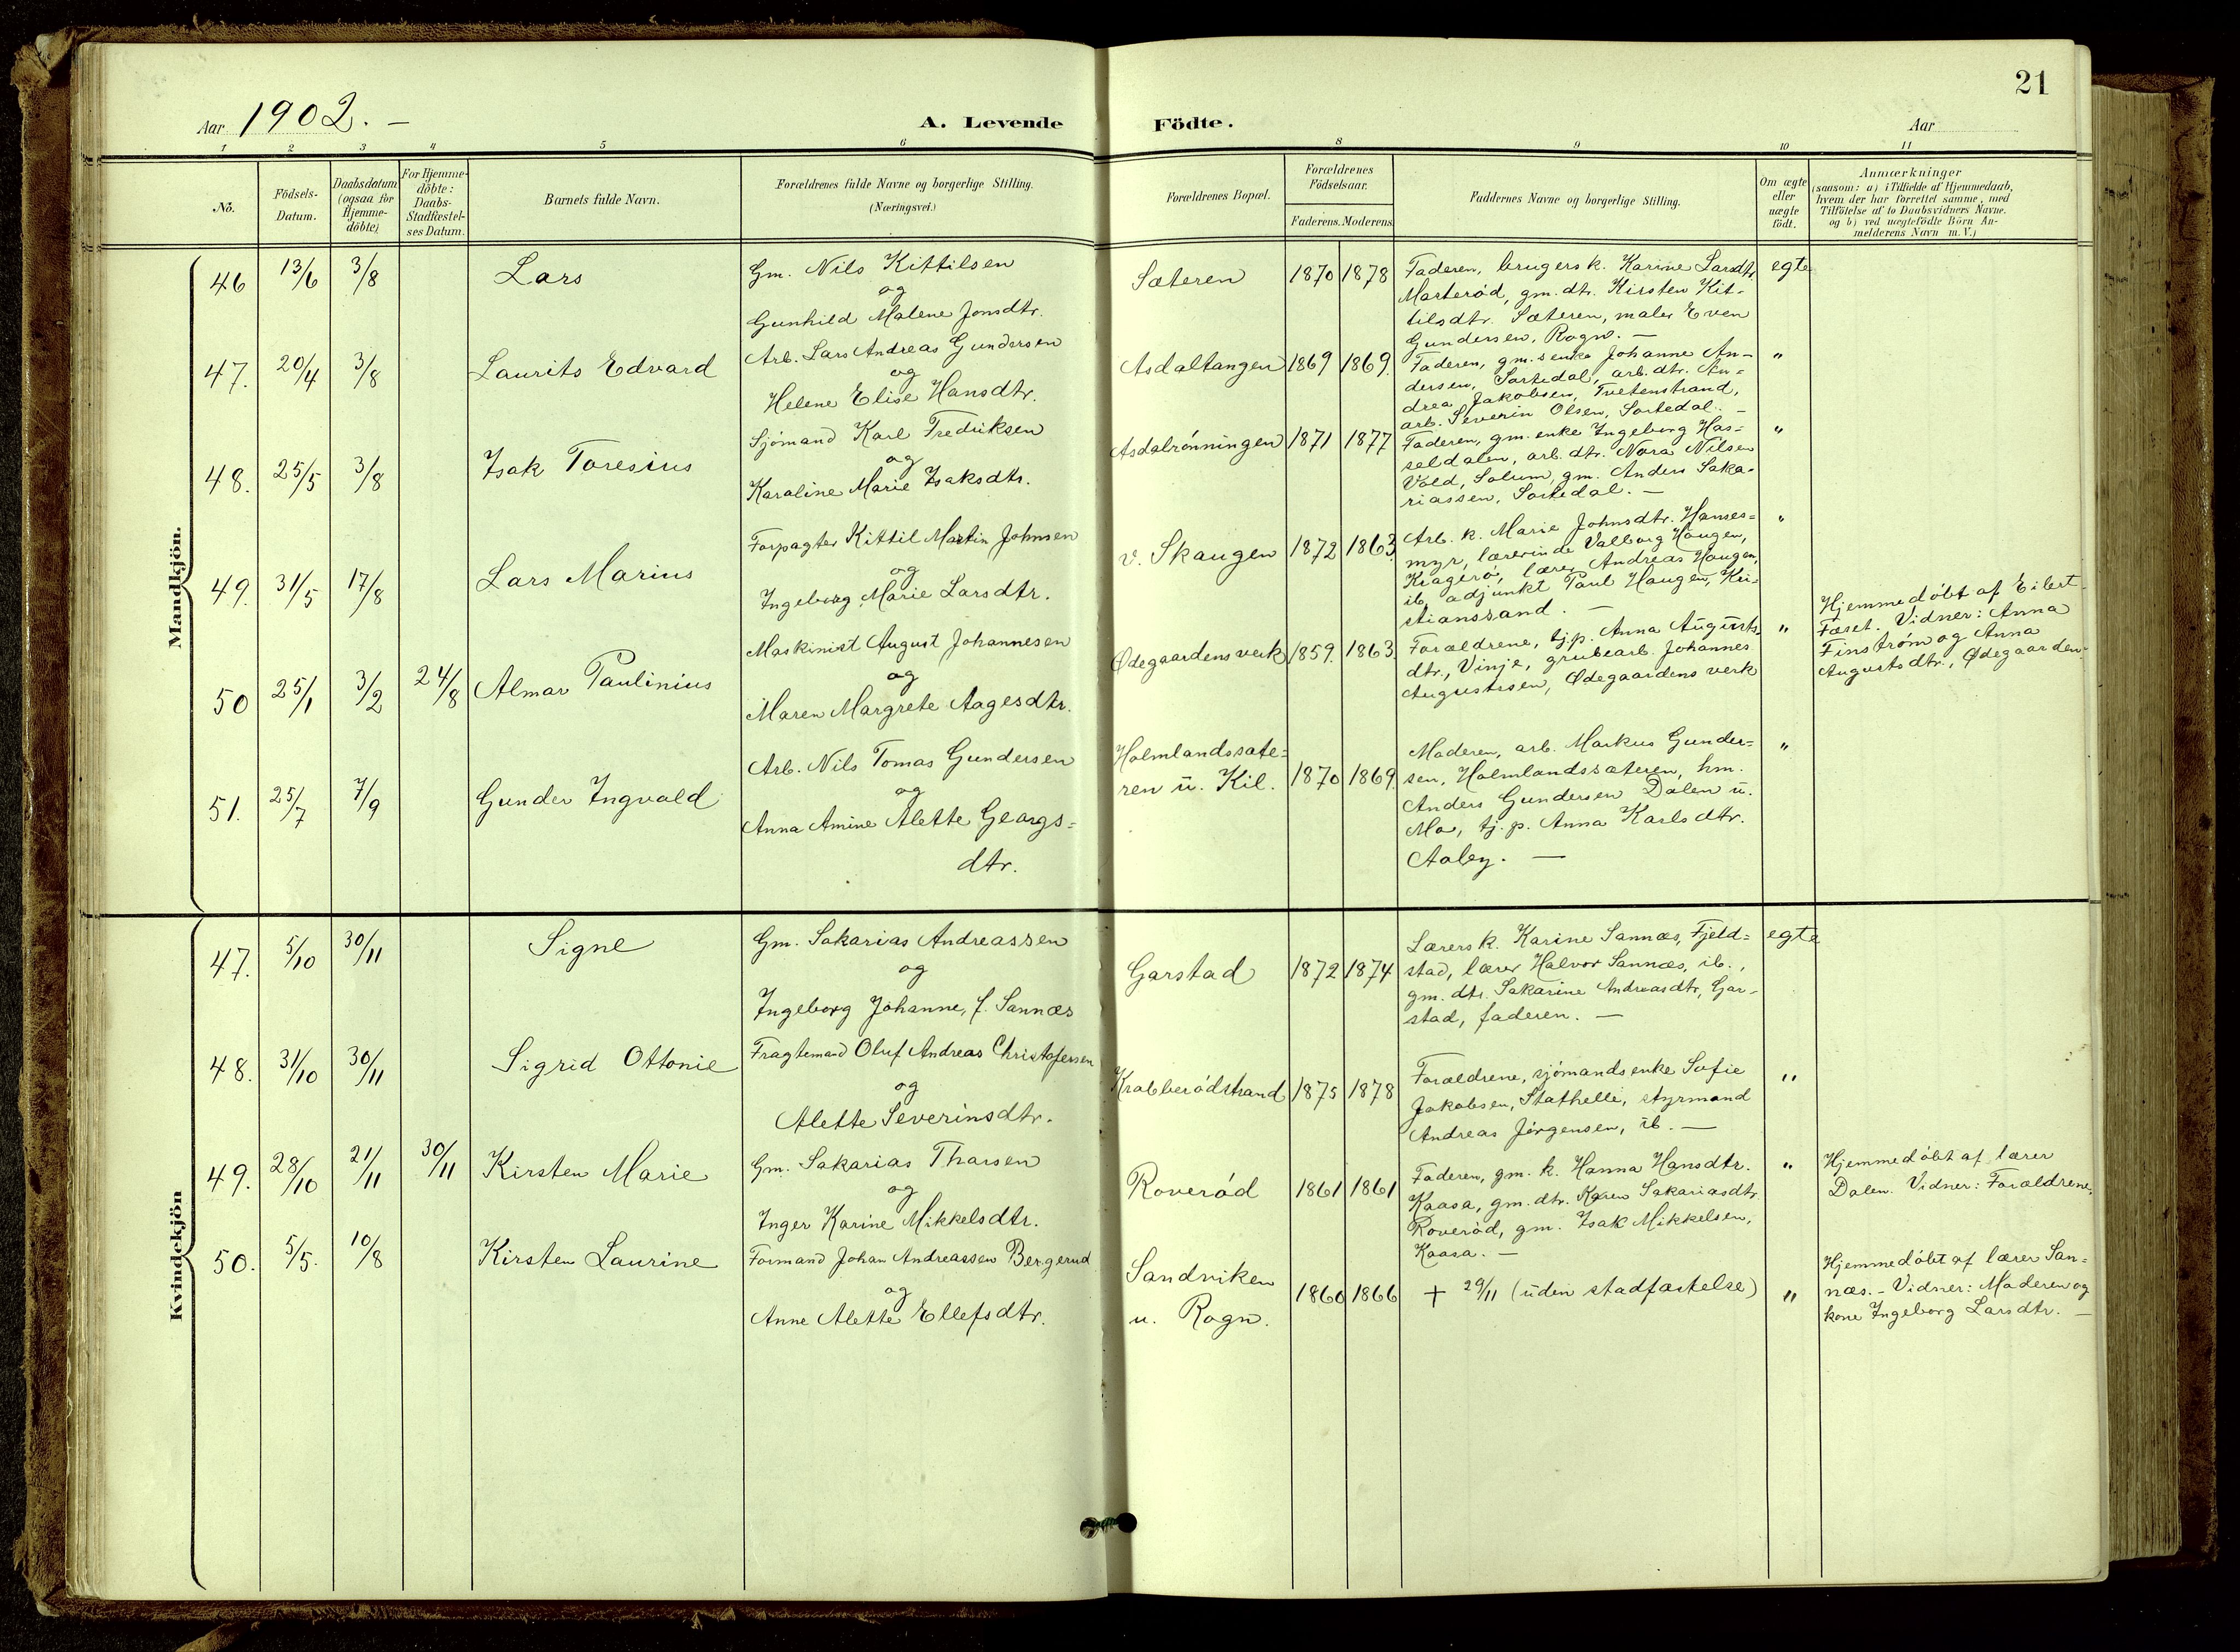 21
Aar 1902. —
A. Levende Födte.
Aar
1 2 3 4 5 6 8 9 10 11
No.
Födsels-
Datum.
Daabsdatum
(ogsaa for
Hjemme-
döbte)
For Hjemme-
döbte:
Daabs-
Stadfæstel-
ses Datum.
Barnets fulde Navn.
Forældrenes fulde Navne og borgerlige Stilling.
(Næringsvei.)
Forældrenes Bopæl.
Forældrenes
Födselsaar.
Faderens. Moderens.
Faddernes Navne og borgerlige Stilling.
Om ægte
eller
uægte
födt.
Anmærkninger
(saasom: a) i Tilfælde af Hjemmedaab,
hvem der har forrettet samme, med
Tilföielse af to Daabsvidners Navne.
og b) ved uægtefödte Börn An-
melderens Navn m. V.)
Mandkjön.
46 13/6 3/8 Lars
Gm. Nils Kittilsen
og
Gunhild Malene Jonsdtr.
Sæteren 1870 1878
Faderen, brugersk. Karine Larsdtr.
Marterød, gm. dtr. Kirsten Kit-
tilsdtr. Sæteren, maler Even
Gundersen, Rogn. —
egte
47. 20/4 3/8 Laurits Edvard
Arb. Lars Andreas Gundersen
og
Helene Elise Hansdtr.
Asdaltangen 1869 1869.
Faderen, gm.s enke Johanne An-
dersen, Sortedal, arb. dtr. An-
drea Jakobsen, Tvetenstrand,
arb. Severin Olsen, Sortedal. —
"
48. 25/5 3/8 Isak Toresius
Sjömand Karl Fredriksen
og
Karoline Marie Isaksdtr.
Asdalrönningen 1871 1877
Faderen, gm. enke Ingeborg Has-
seldalen, arb. dtr. Nora Nilsen
Vold, Solum, gm. Anders Saka-
riassen, Sortedal. —
"
49. 31/5 17/8 Lars Marius
Forpagter Kittil Martin Johnsen
og
Ingeborg Marie Larsdtr.
v. Skaugen 1872 1863
Arb. k. Marie Johnsdtr. Hanses-
myr, lærerinde Valborg Haugen,
Kragerø, lærer Andreas Haugen,
ib. adjunkt Paul Haugen, Kri-
stianssand. —
"
50 25/1 3/2 24/8 Almar Paulinius
Maskinist August Johannesen
og
Maren Margrete Aagesdtr.
Ødegaardens verk 1859. 1863
Forældrene, tj.p. Anna Augusts-
dtr., Vinje, grubearb. Johannes
Augustsen, Ødegaardens verk
"
Hjemmedøbt af Eilert
Fæset. Vidner: Anna
Finstrøm og Anna
Augustsdtr., Ødegaarden.
51. 25/7 7/9 Gunder Ingvald
Arb. Nils Tomas Gundersen
og
Anna Amine Alette Georgs-
dtr.
Holmlandssæte-
ren u. Kil. 1870 1869.
Moderen, arb. Markus Gunder-
sen, Holmlandssæteren, hm.
Anders Gundersen Dalen u.
Mo, tj. p. Anna Karlsdtr.
Aaby. —
"
Kvindekjön
47. 5/10 30/11 Signe
Gm. Sakarias Andreassen
og
Ingeborg Johanne, f. Sannæs
Garstad 1872 1874
Lærersk. Karine Sannæs, Fjeld-
stad, lærer Halvor Sannæs, ib.,
gm. dtr. Sakarine Andreasdtr, Gar-
stad, faderen. —
egte
48. 31/10 30/11 Sigrid Ottonie
Fragtemand Oluf Andreas Christofersen
og
Alette Severinsdtr.
Krabberødstrand 1875 1878
Forældrene, sjömandsenke Sofie
Jakobsen, Stathelle, styrmand
Andreas Jörgensen, ib. —
"
49. 28/10 21/11 30/11 Kirsten Marie
Gm. Sakarias Tharsen
og
Inger Karine Mikkelsdtr.
Roverød 1861 1861
Faderen, gm. k. Hanna Hansdtr.
Kaasa, gm. dtr. Karen Sakariasdtr
Roverød, gm. Isak Mikkelsen,
Kaasa. —
"
Hjemmedøbt af lærer
Dalen. Vidner: Forældrene.
50. 5/5. 10/8 Kirsten Laurine
Formand Johan Andreassen Bergerud
og
Anne Alette Ellefsdtr.
Sandviken
u. Rogn. 1860 1866
+ 29/11 (uden stadfæstelse)
"
Hjemmedøbt af lærer San-
næs. - Vidner: Moderen og
kone Ingeborg Larsdtr. —